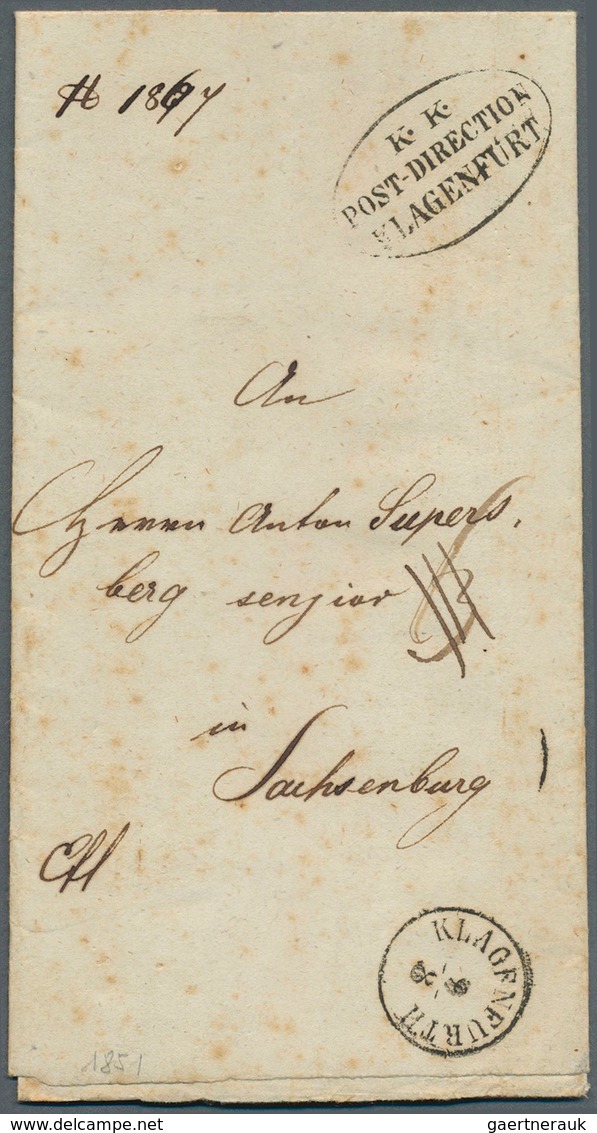 1867
K. K.
POST-DIRECTION
KLAGENFURT
An
Herrn Anton Supers,
berg senjior
in
Sachsenburg
KLAGENFURTH
1851
gaertnerauk